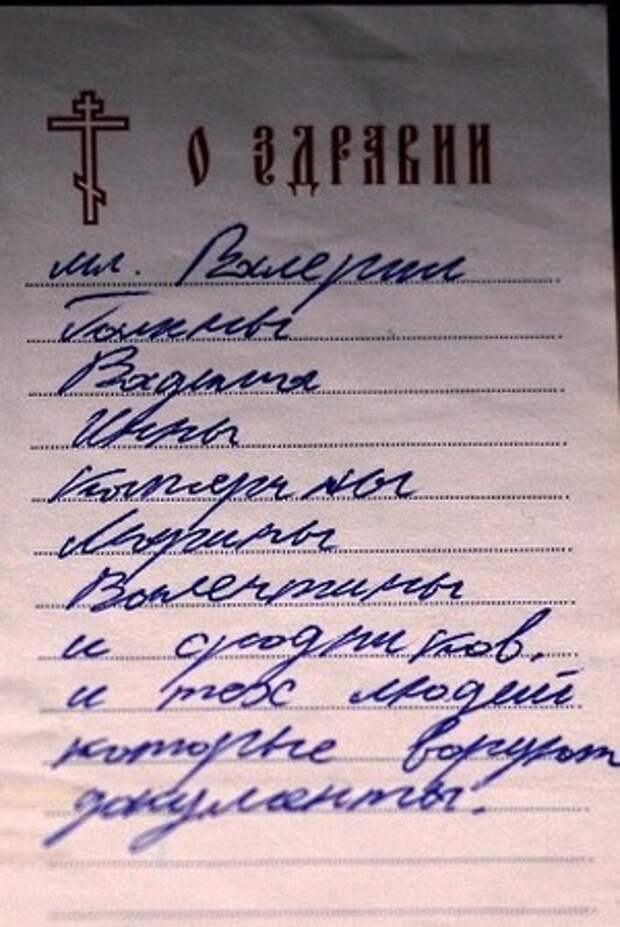 О ЗДРАВИИ
мл. Валерии
Галины
Вадима
Инны
Катерины
Марины
Валентины
и сродников.
и тех людей
которые воруют
документы.